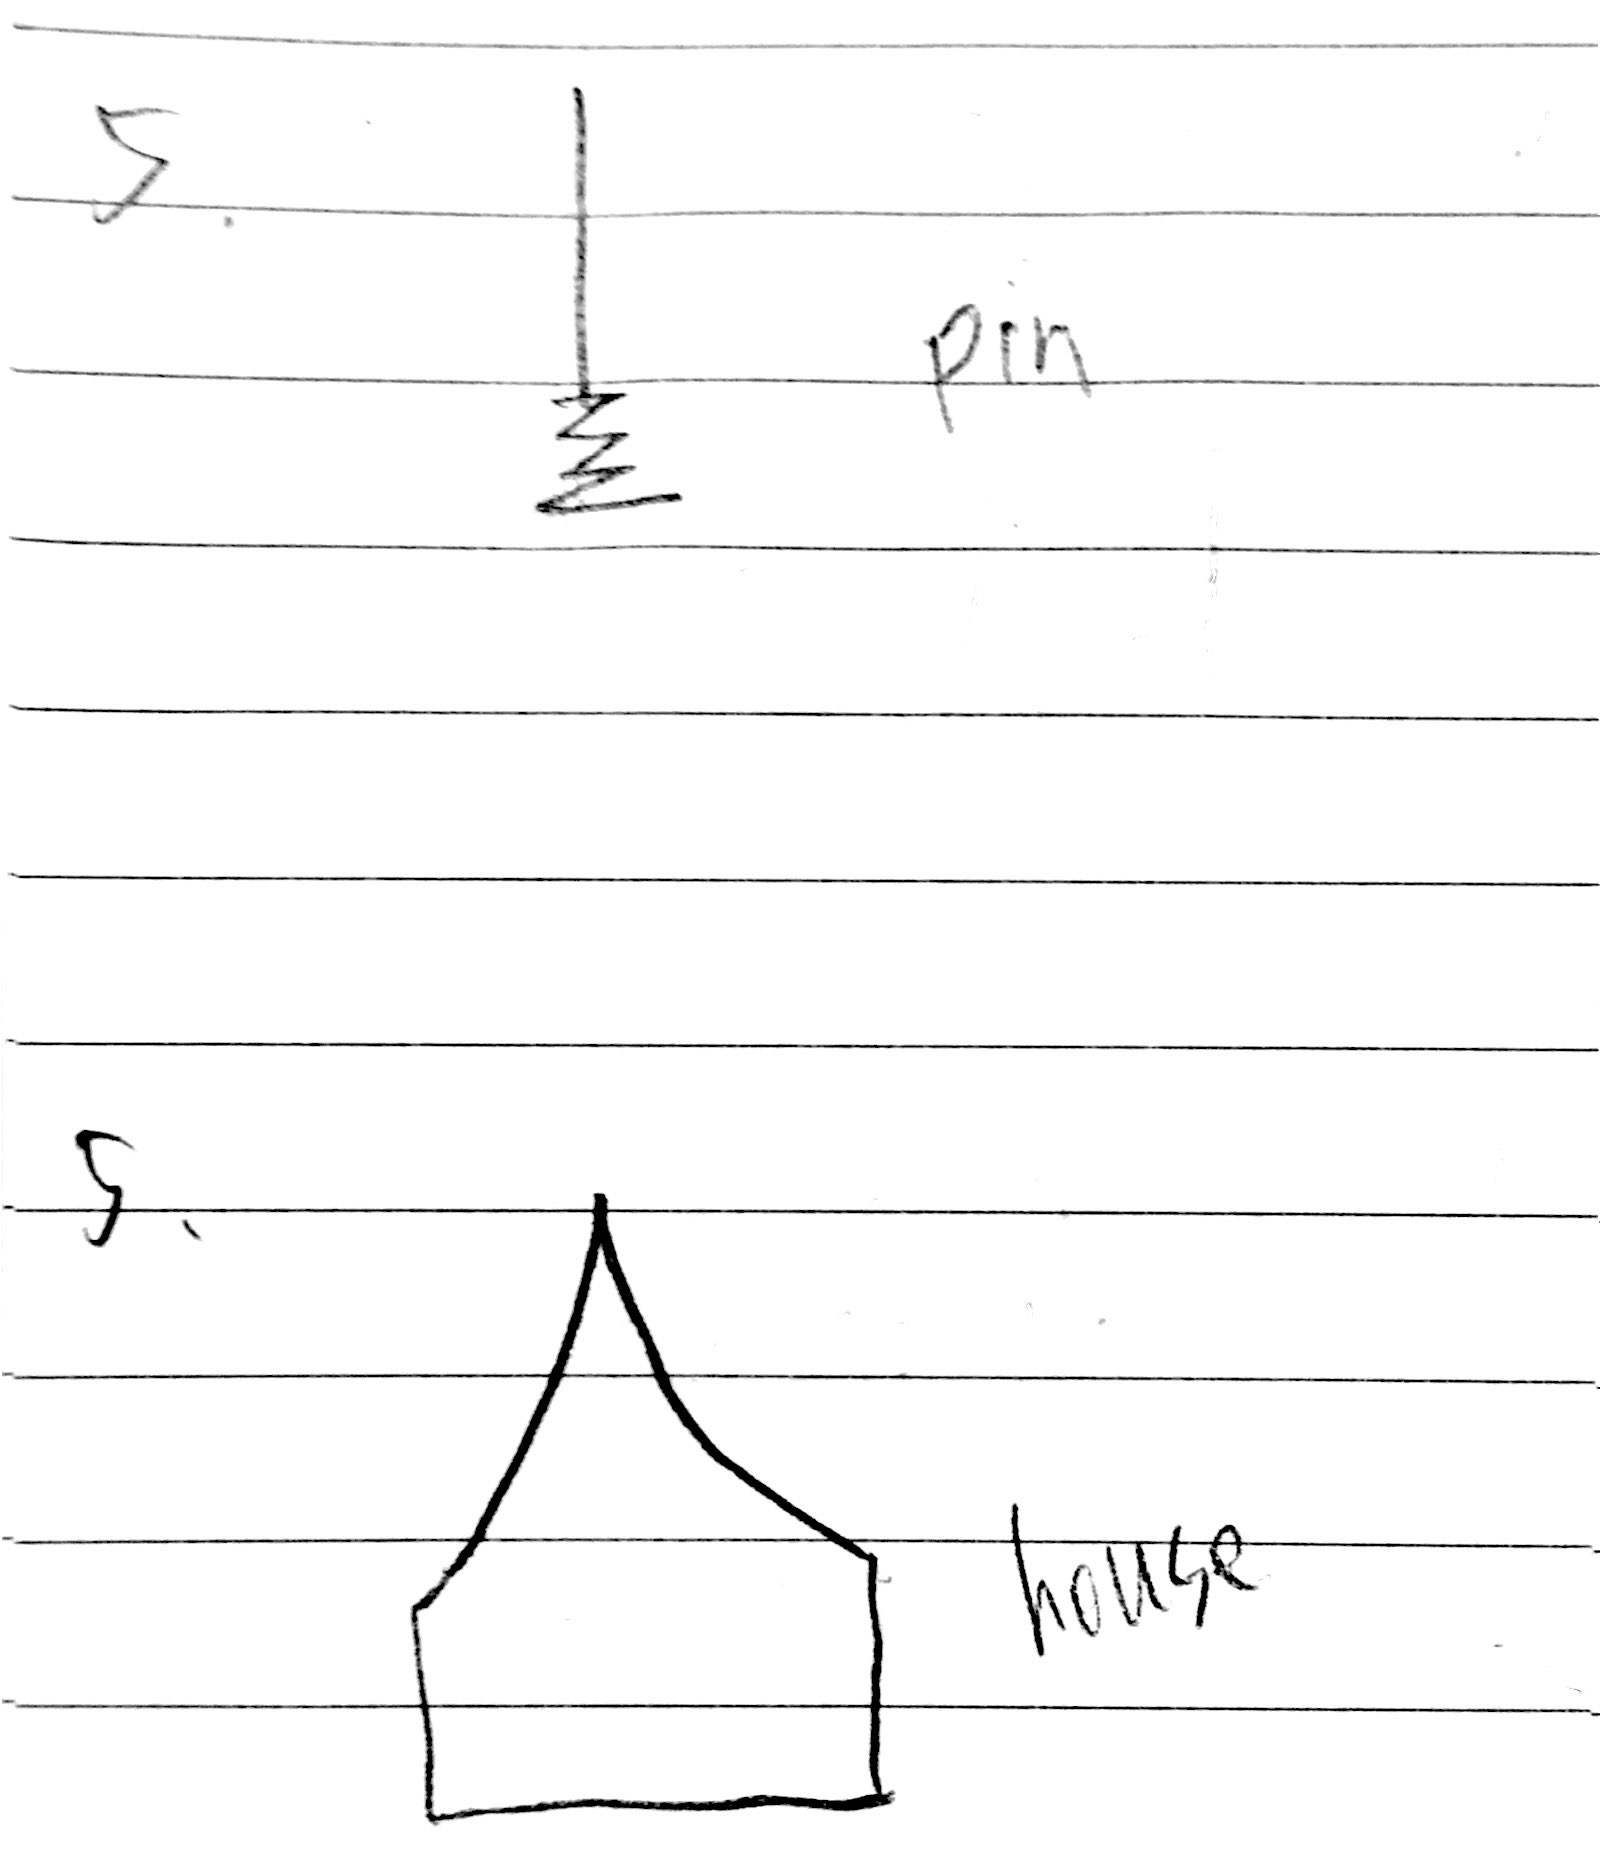 5.
pin
5.
house